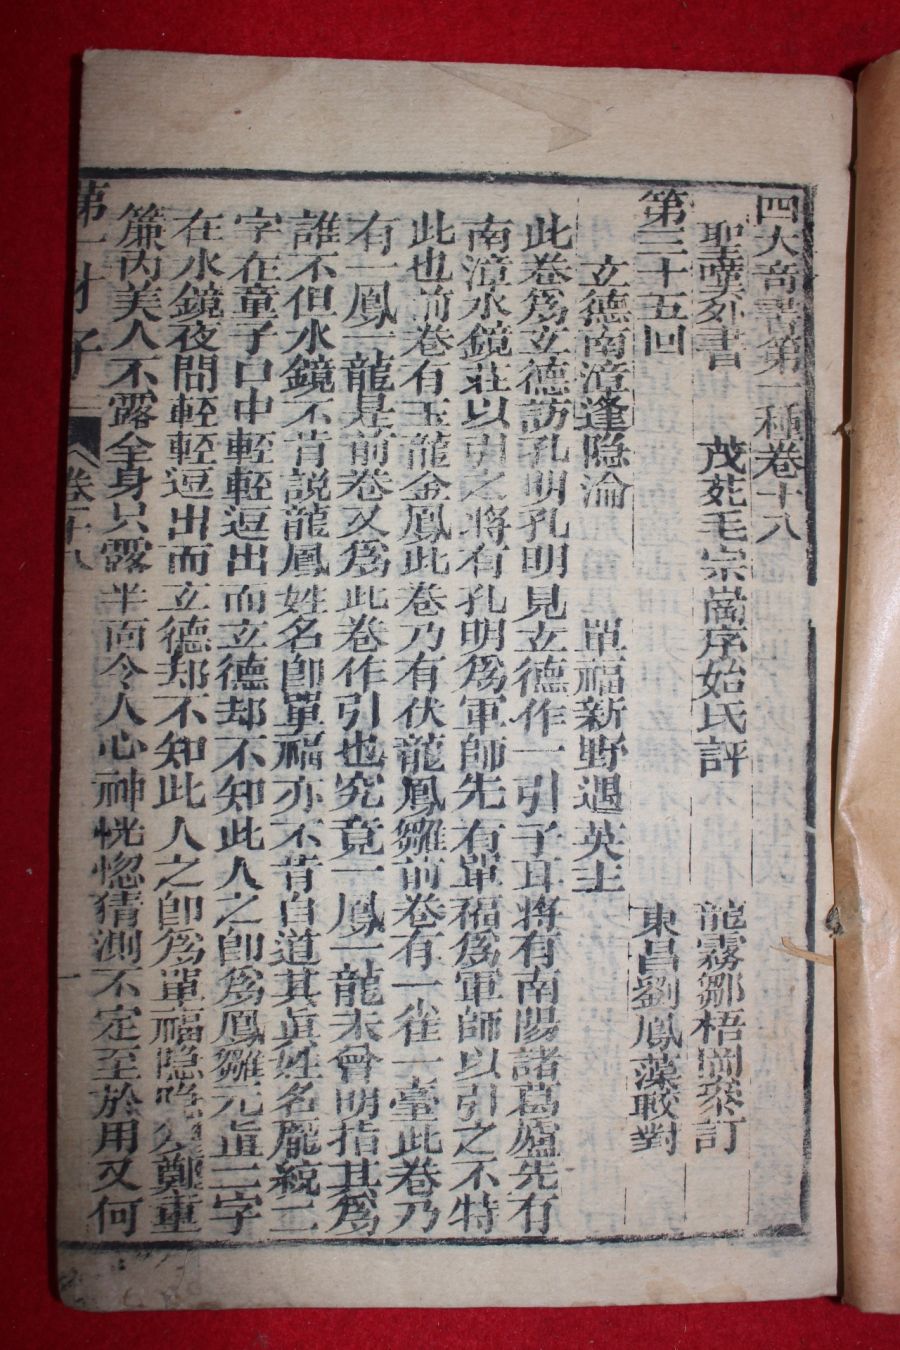 四大奇書第一種卷十八
聖嘆外書　茂苑毛宗崗序始氏評　龍霧鄒梧岡叅訂
第三十五回　東昌劉鳳藻較對
立德南漳逢隐淪　單福新野遇英主
此卷爲立德訪孔明孔明見立德作一引子耳將有南陽諸葛廬先有
南漳水鏡莊以引之將有孔明爲軍師先有單福爲軍師以引之不特
此也前卷有玉龍金鳳此卷乃有伏龍鳳雛前卷有一雀一臺此卷乃
有一鳳一龍是前卷又爲此卷作引也究竟一鳳一龍未曾明指其爲
誰不但水鏡不肯説龍鳳姓名卽單福亦不肯自道其眞姓名龐統二
字在童子口中輕輕逗出而立德却不知此人之卽爲鳳雛元直二字
在水鏡夜間輕輕逗出而立德却不知此人之卽爲單福隐隐鄭重
簾内美人不露全身只露半面令人心神恍惚猜測不定至於用又何
第一才子　卷十八　一